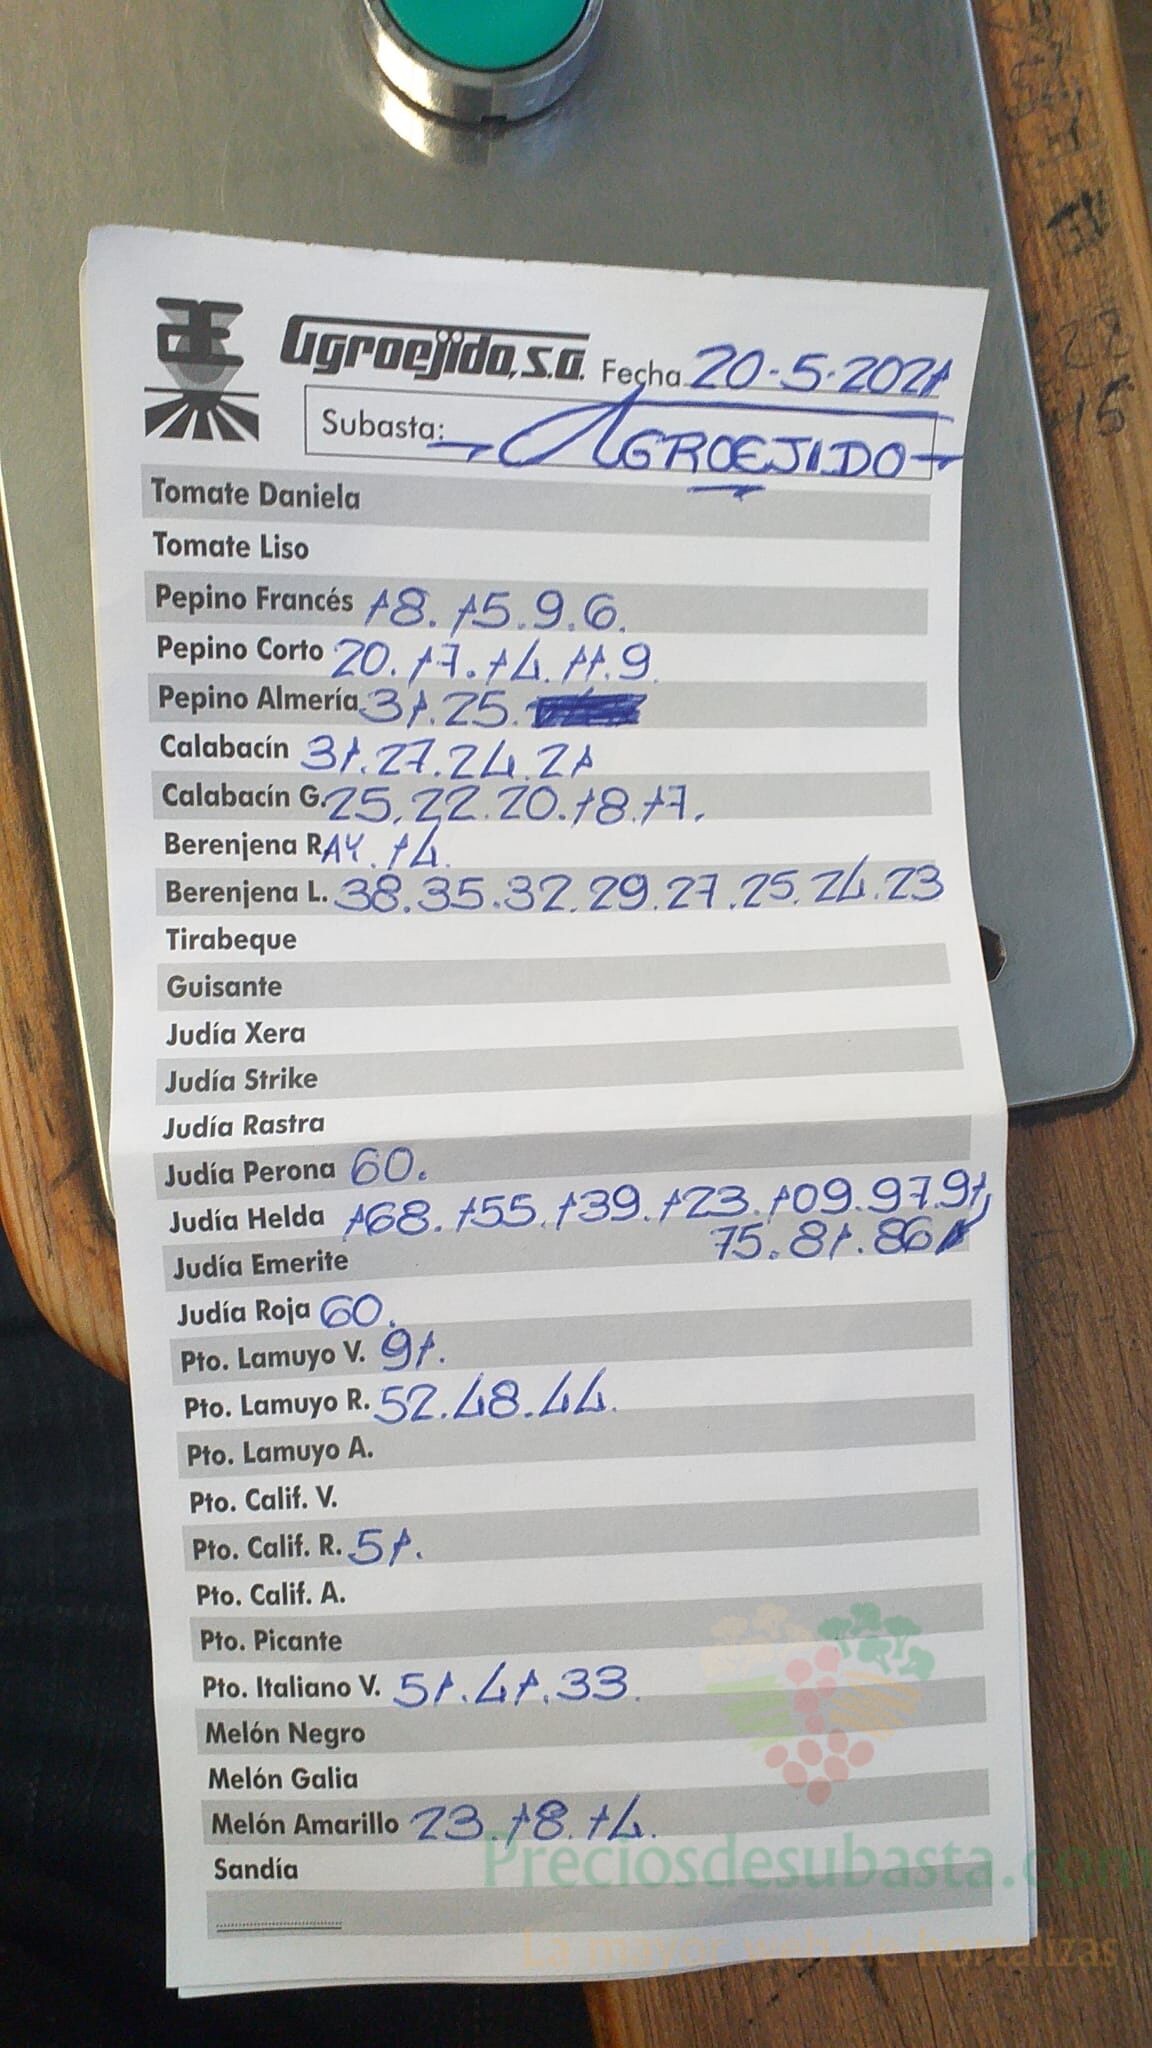 Agroejido, S.A. Fecha 20-5-2021
Subasta: AGROEJIDO
Tomate Daniela
Tomate Liso
Pepino Francés 18. 15. 9. 6.
Pepino Corto 20. 17. 14. 11. 9.
Pepino Almería 31. 25.
Calabacín 31. 27. 24. 21
Calabacín G. 25. 22. 20. 18. 17.
Berenjena RAY. 14.
Berenjena L. 38. 35. 32. 29. 27. 25. 24. 23
Tirabeque
Guisante
Judía Xera
Judía Strike
Judía Rastra
Judía Perona 60.
Judía Helda 168. 155. 139. 123. 109. 97. 91,
75. 81. 86
Judía Emerite
Judía Roja 60.
Pto. Lamuyo V. 91.
Pto. Lamuyo R. 52. 48. 44.
Pto. Lamuyo A.
Pto. Calif. V.
Pto. Calif. R. 51.
Pto. Calif. A.
Pto. Picante
Pto. Italiano V. 51. 41. 33.
Melón Negro
Melón Galia
Melón Amarillo 23. 18. 14.
Sandía
Preciosdesubasta.com
La mayor web de hortalizas